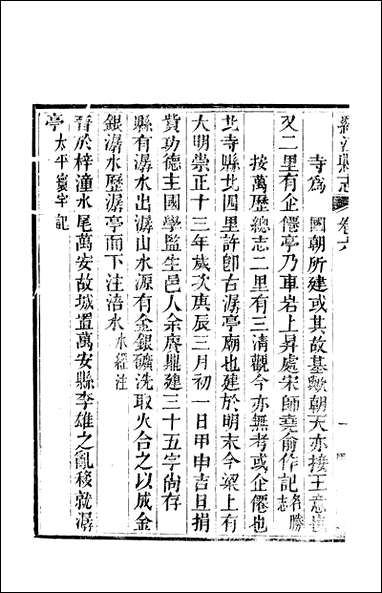 羅江縣志 卷六
寺爲 國朝所建或其故基歟朝天亦接王意
又二里有企僊亭乃車岩上昇處宋師堯俞作記名勝志
按萬歷總志二里有三清觀今亦無考或企僊也
北寺縣北四里許卽古潺亭廟也建於明末今梁上有
大明崇正十三年歲次庚辰三月初一日甲申吉旦捐
貲功德主國學監生邑人余 鼎建三十五字尙存
縣有潺水出潺山水源有金銀礦洗取火合之以成金
銀潺水歷潺亭而下注涪水水經注
晉於梓潼水尾萬安故城置萬安縣李雄之亂移就潺
亭太平寰宇記